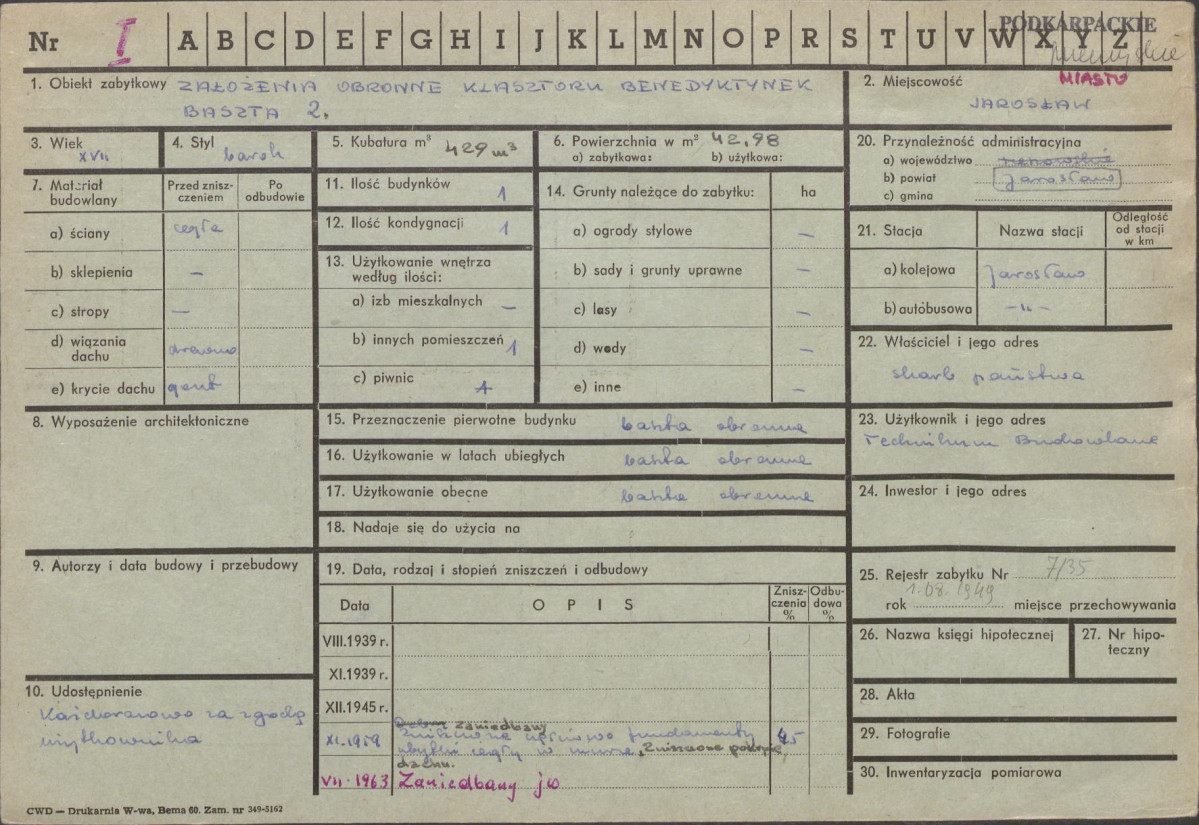 PODKARPACKIE
Nr I A B C D E F G H I J K L M N O P R S T U V W X Y Z
przemyskie
1. Obiekt zabytkowy ZAŁOŻENIA OBRONNE KLASZTORU BENEDYKTYNEK
BASZTA 2.
2. Miejscowość MIASTO
JAROSŁAW
3. Wiek
XVII
4. Styl
barok
5. Kubatura m³ 429 m³
6. Powierzchnia w m² 42,98
a) zabytkowa: b) użytkowa:
20. Przynależność administracyjna
a) województwo rzeszowskie
b) powiat Jarosław
c) gmina
7. Materiał budowlany
Przed zniszczeniem
Po odbudowie
a) ściany cegła
b) sklepienia –
c) stropy –
d) wiązania dachu drewno
e) krycie dachu gont
11. Ilość budynków 1
12. Ilość kondygnacji 1
13. Użytkowanie wnętrza
według ilości:
a) izb mieszkalnych –
b) innych pomieszczeń 1
c) piwnic
14. Grunty należące do zabytku: ha
a) ogrody stylowe –
b) sady i grunty uprawne –
c) lasy –
d) wody –
e) inne –
21. Stacja Nazwa stacji Odległość od stacji w km
a) kolejowa Jarosław
b) autobusowa –"–
22. Właściciel i jego adres
skarb państwa
8. Wyposażenie architektoniczne
15. Przeznaczenie pierwotne budynku baszta obronna
16. Użytkowanie w latach ubiegłych baszta obronna
17. Użytkowanie obecne baszta obronna
18. Nadaje się do użycia na
23. Użytkownik i jego adres
Technikum Budowlane
24. Inwestor i jego adres
9. Autorzy i data budowy i przebudowy
19. Data, rodzaj i stopień zniszczeń i odbudowy
Data OPIS Zniszczenia % Odbudowa %
VIII.1939 r.
XI.1939 r.
XII.1945 r.
zaniedbany
XI.1959 Zniszczone częściowo fundamenty 45
ubytki cegły w murze, Zniszczone pokrycie
dachu.
VII.1963 Zaniedbany jw
25. Rejestr zabytku Nr 7/35
1.08.1949
rok miejsce przechowywania
26. Nazwa księgi hipotecznej
27. Nr hipoteczny
10. Udostępnienie
Każdorazowo za zgodą
użytkownika
28. Akta
29. Fotografie
30. Inwentaryzacja pomiarowa
CWD — Drukarnia W-wa, Bema 60. Zam. nr 349-5162